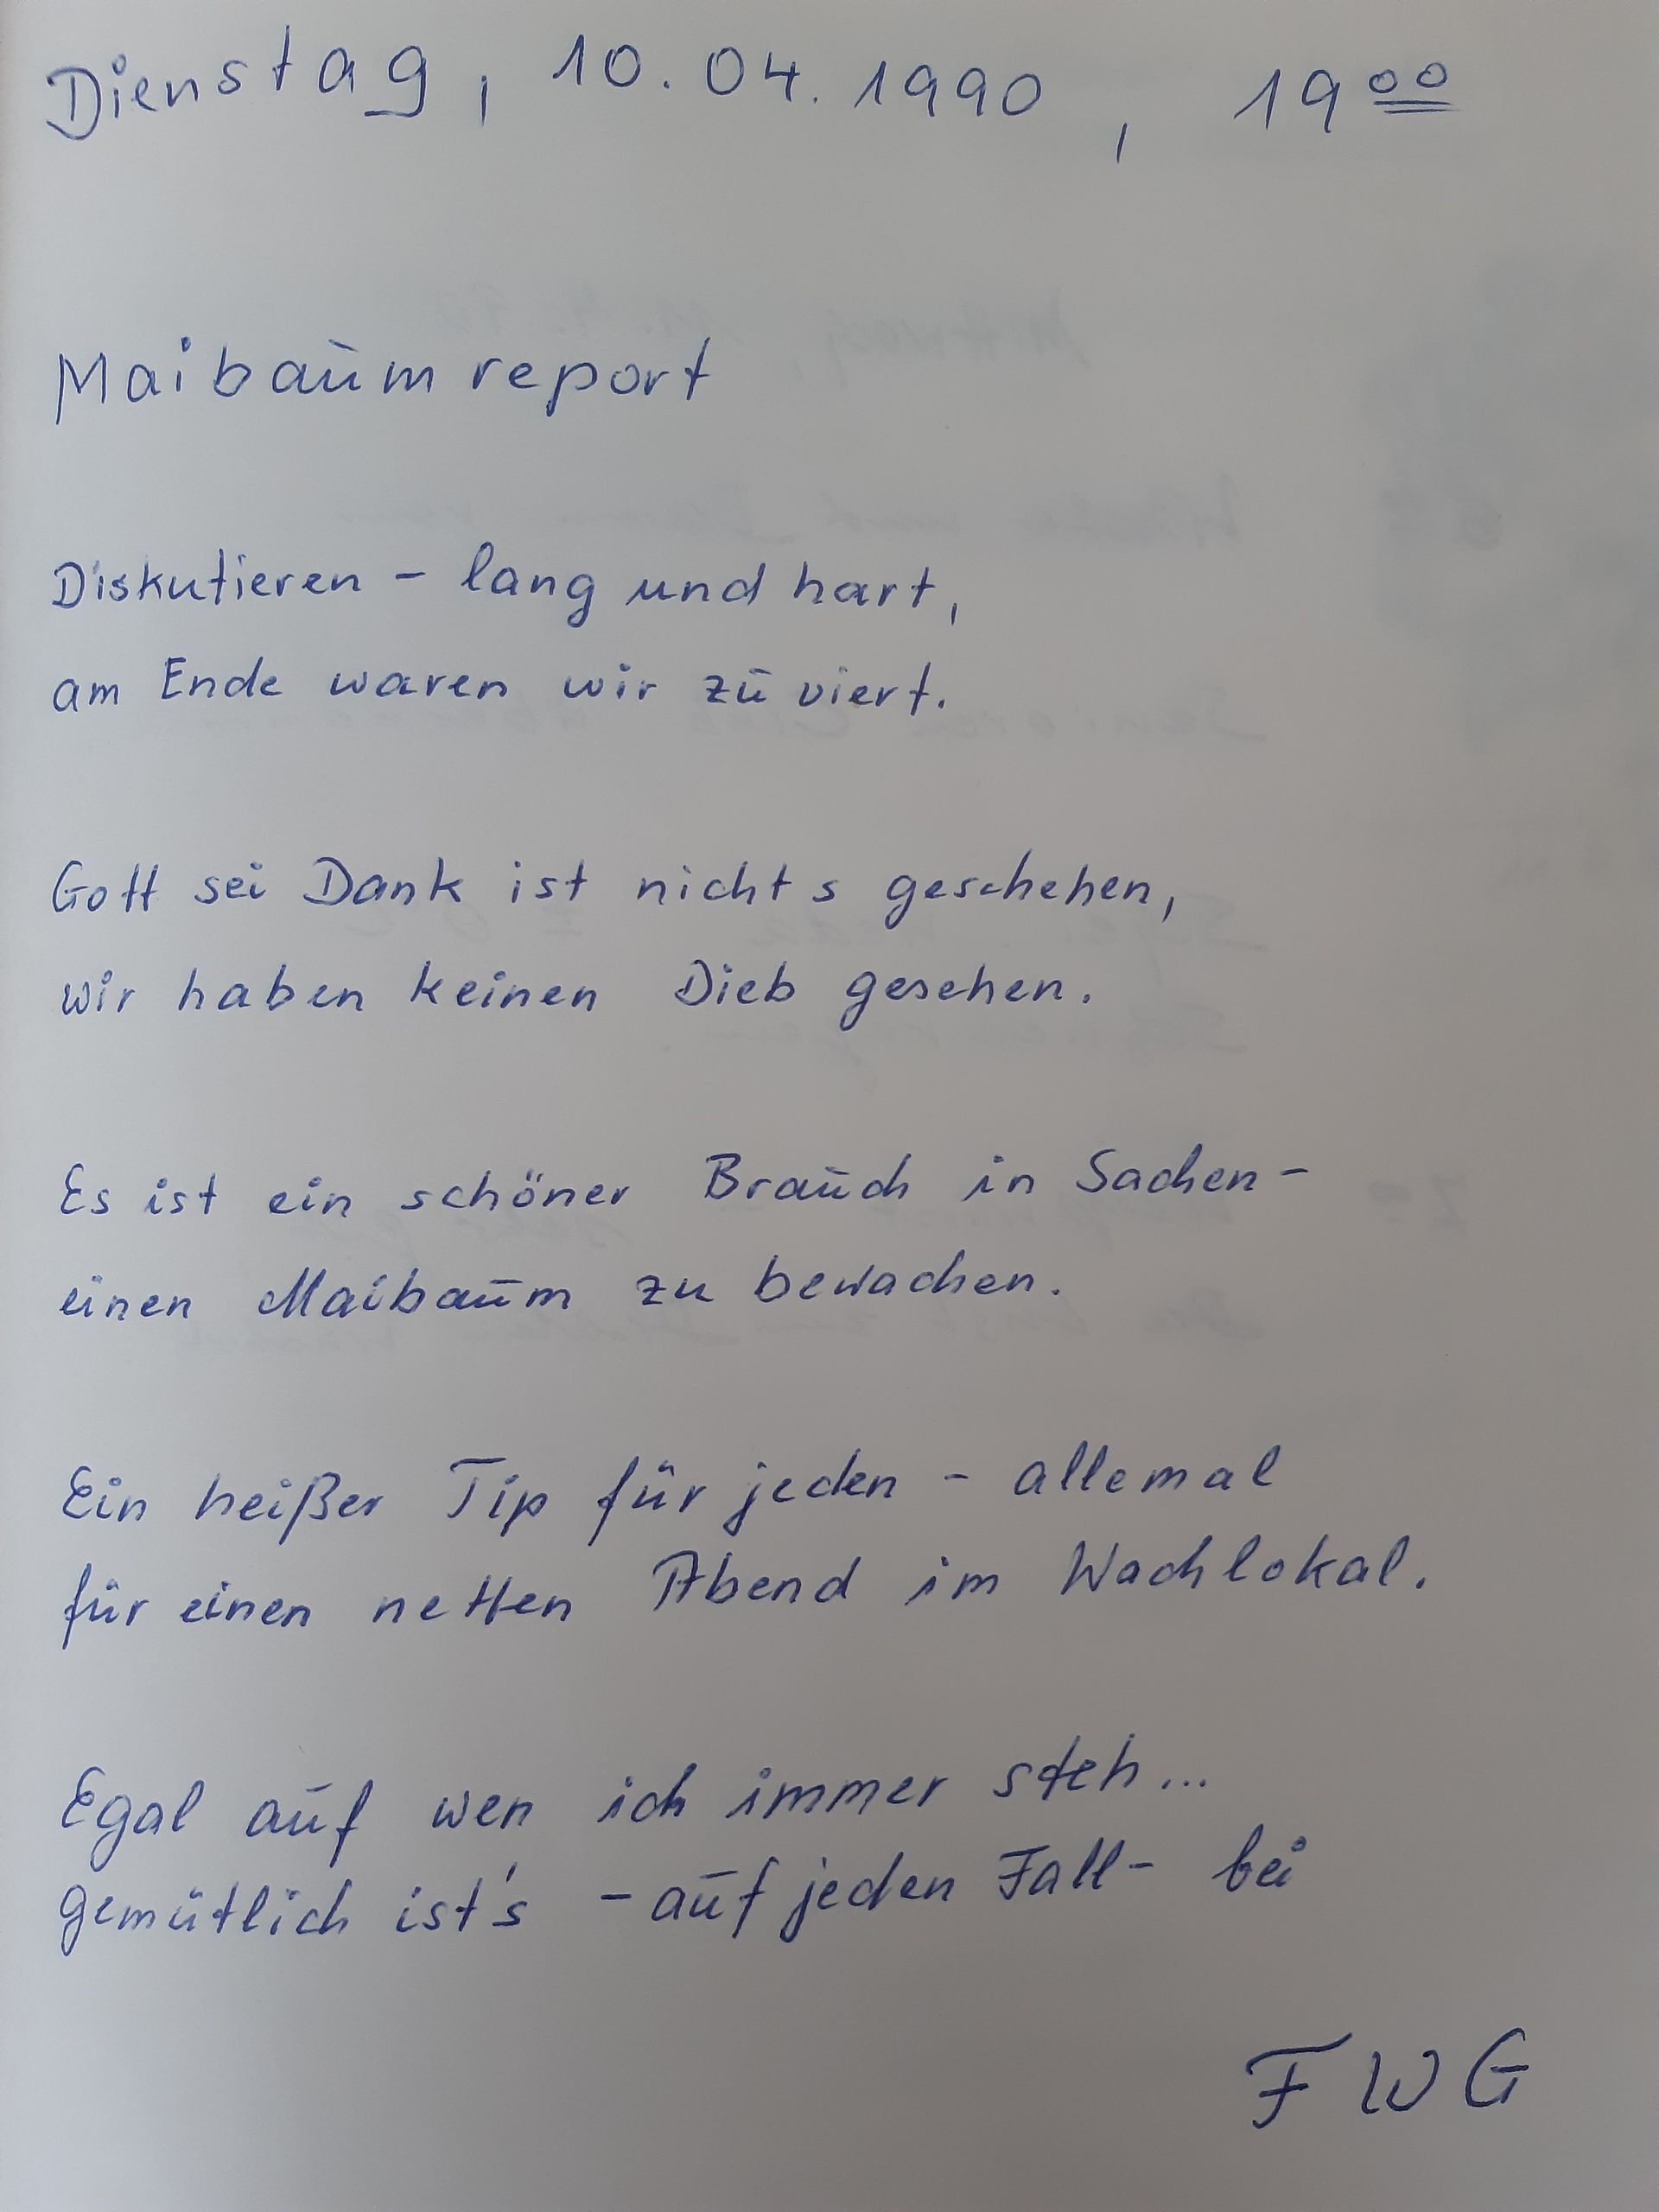 Dienstag, 10.04.1990, 19⁰⁰
Maibaumreport
Diskutieren – lang und hart,
am Ende waren wir zu viert.
Gott sei Dank ist nichts geschehen,
wir haben keinen Dieb gesehen.
Es ist ein schöner Brauch in Sachen –
einen Maibaum zu bewachen.
Ein heißer Tip für jeden – allemal
für einen netten Abend im Wachlokal.
Egal auf wen ich immer steh...
gemütlich ist's – auf jeden Fall – bei
FWG